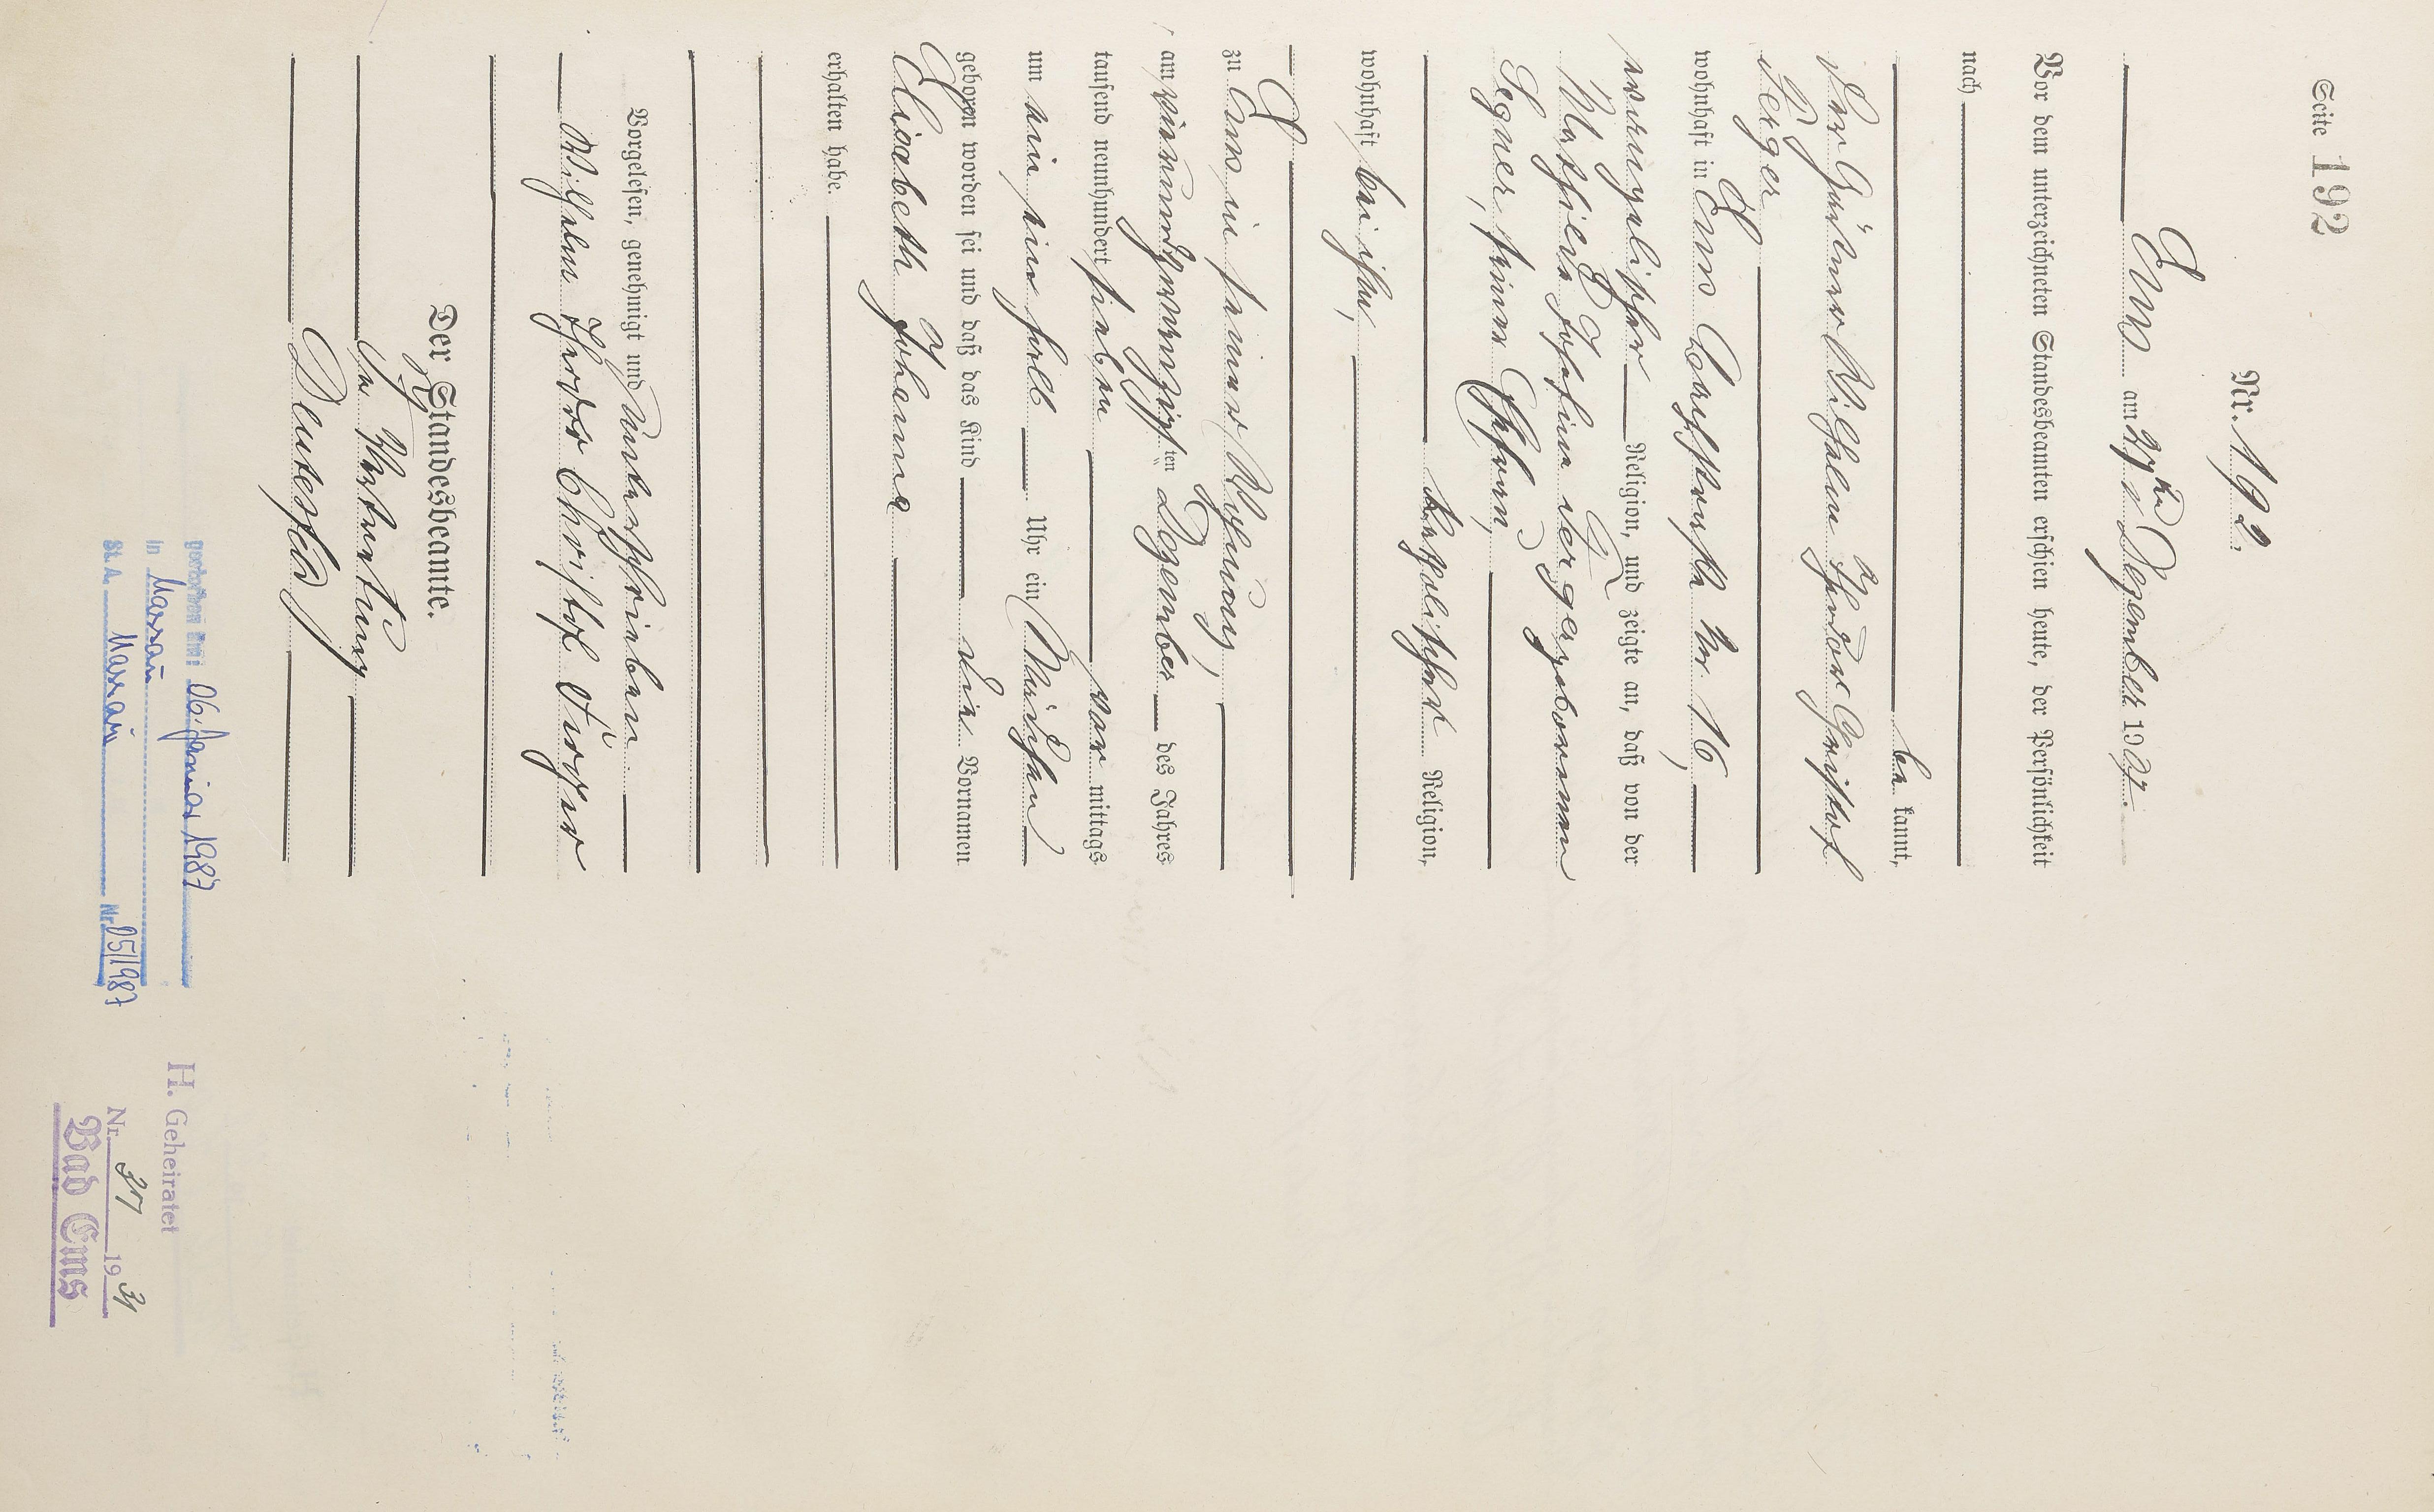 Seite 192
Nr. 192.
Ems am 27ten Dezember 1907.
Vor dem unterzeichneten Standesbeamten erschien heute, der Persönlichkeit
nach
be kannt,
der Gärtner Wilhelm Theodor Christof
wohnhaft in Ems, Bachstraße No. 16,
evangelischer Religion, und zeigte an, daß von der
Josefine geborenen
seiner Ehefrau,
katholischer Religion,
wohnhaft bei ihm,
zu Ems in seiner Wohnung,
am vierundzwanzigsten Dezember des Jahres
tausend neunhundert sieben vor mittags
um ein ein halb Uhr ein Mädchen
geboren worden sei und daß das Kind die Vornamen
Elisabeth Johanna
erhalten habe.
Vorgelesen, genehmigt und unterschrieben
Wilhelm Theodor Christof
Der Standesbeamte.
In Vertretung
gestorben am: 06. Januar 1987
in Nassau
St. A. Nassau Nr. 05/1987
H. Geheiratet
Nr. 37 1931
Bad Ems